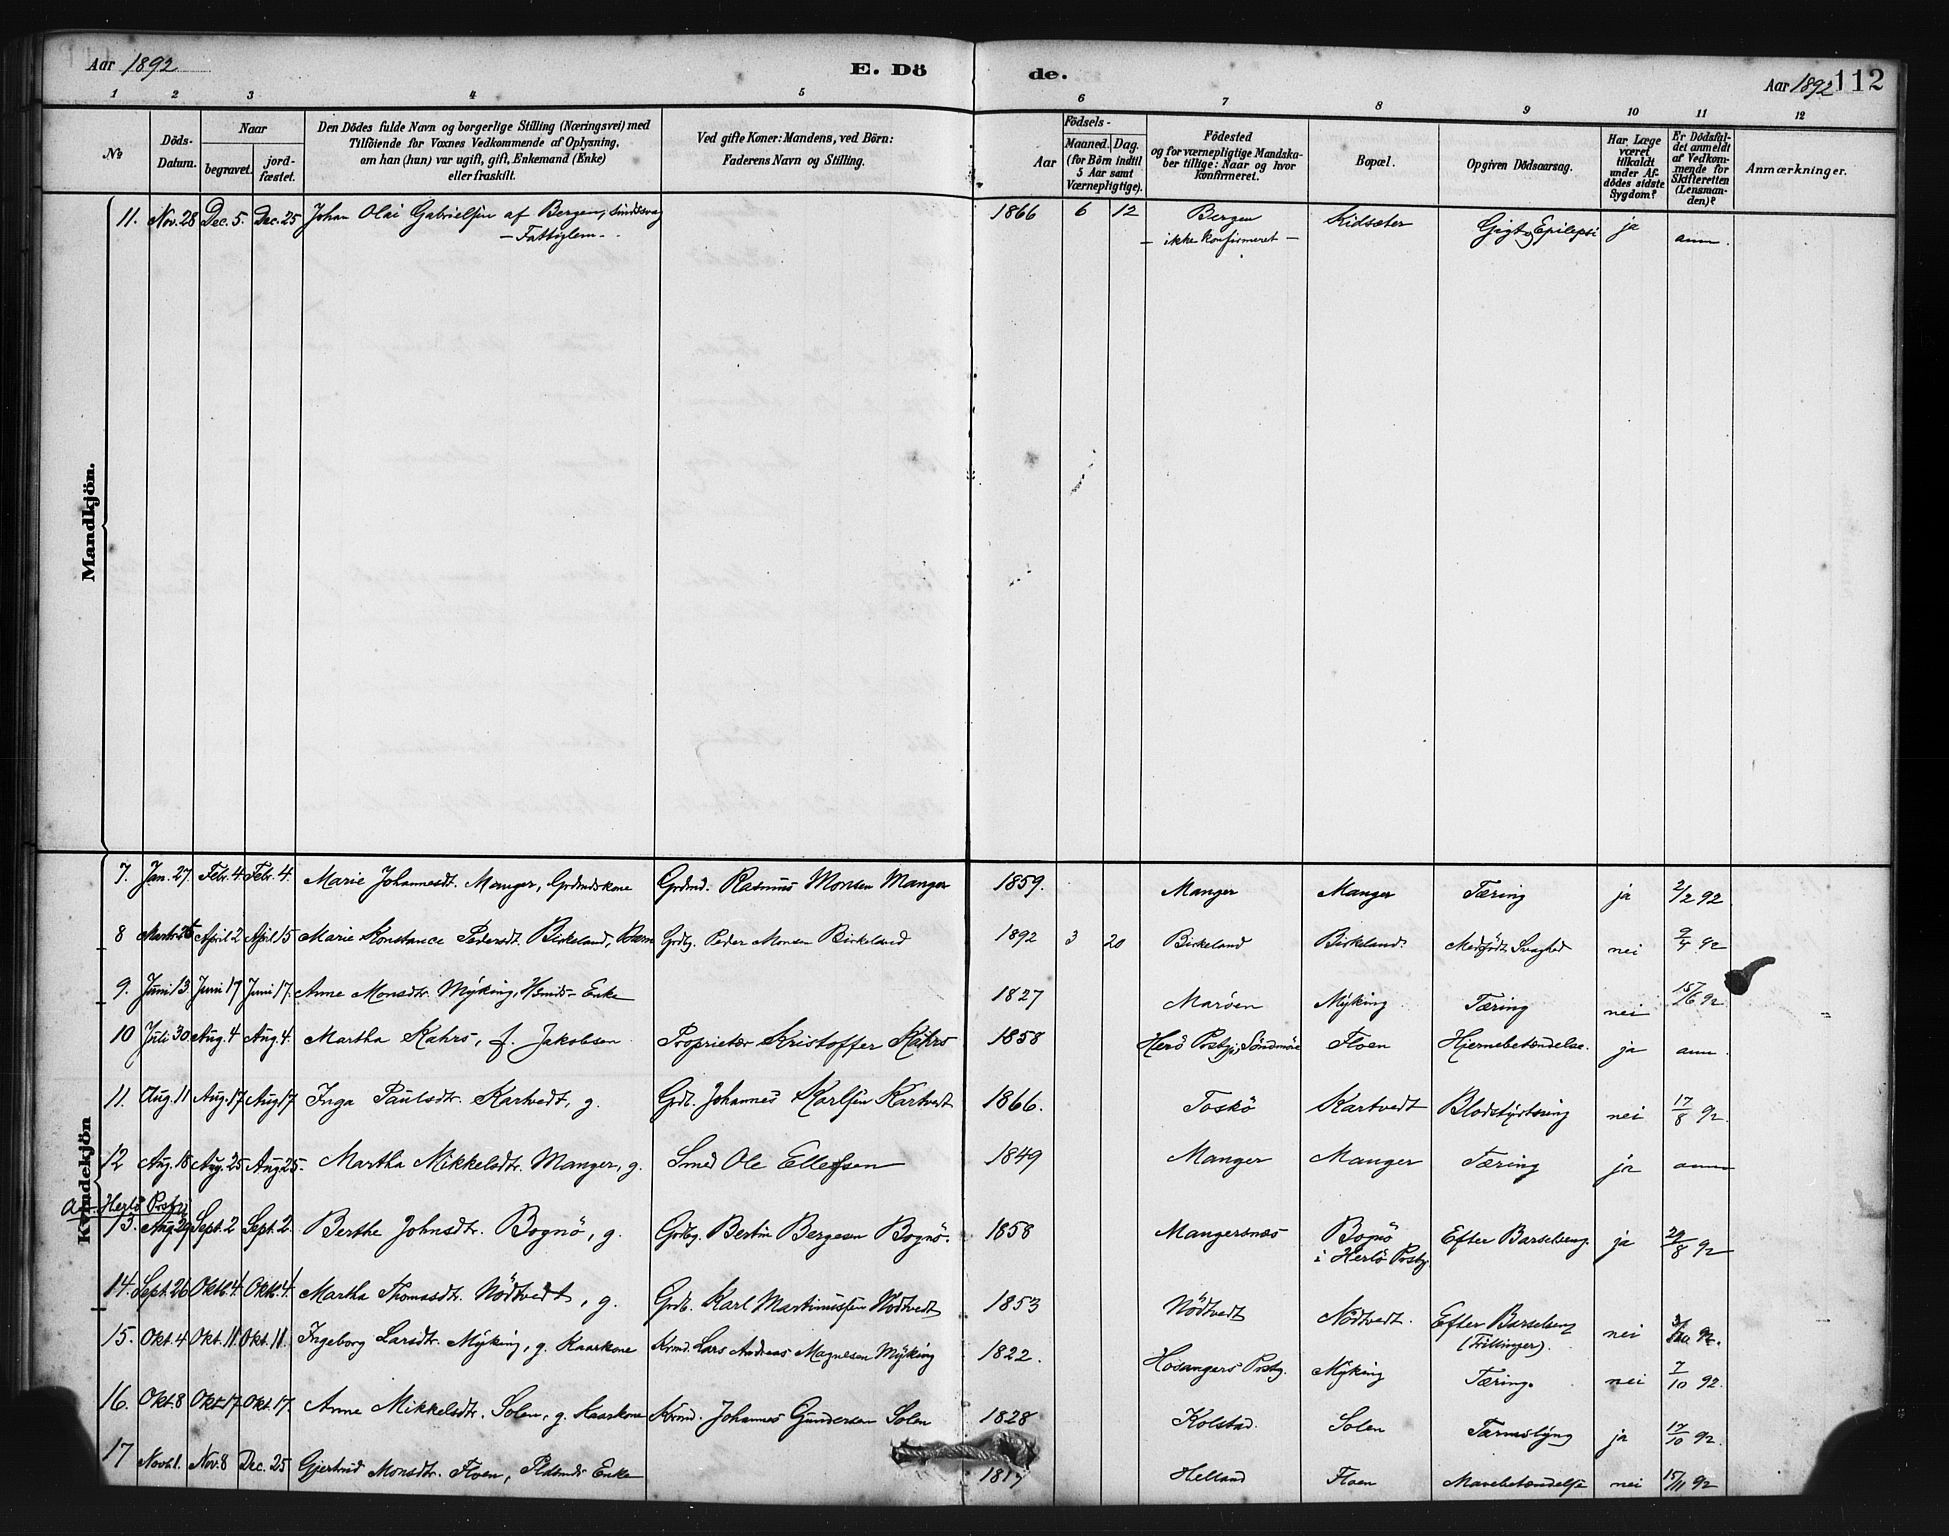 Aar 1892 E. Dö de. Aar 1892 112
1 2 3 4 5 6 7 8 9 10 11 12
No
Döds-Datum.
Naar
begravet.
jord-fæstet.
Den Dödes fulde Navn og borgerlige Stilling (Næringsvei) med
Tilföiende for Voxnes Vedkommende af Oplysning,
om han (hun) var ugift, gift, Enkemand (Enke)
eller fraskilt.
Ved gifte Koner: Mandens, ved Börn:
Faderens Navn og Stilling.
Födsels-
Aar
Maaned. Dag.
(for Börn indtil
5 Aar samt
Værnepligtige).
Födested
og for værnepligtige Mandska-
ber tillige: Naar og hvor
konfirmeret.
Bopæl.
Opgiven Dödsaarsag.
Har Læge
været
tilkaldt
under Af-
dödes sidste
Sygdom?
Er Dödsfal-
det anmeldt
af Vedkom-
mende for
Skifteretten
(Lensman-
den)?
Anmærkninger.
Mandkjön.
11. Nov. 28 Dec. 5. Dec. 25 Johan Olai Gabrielsen af Bergen, Sindssvag 1866 6 12 Bergen Kidsæter Gigt og Epilepsi ja anm.
- Fattiglem - - ikke konfirmeret -
Kvindekjön
7. Jan. 27. Febr. 4 Febr. 4. Marie Johannesdt. Manger, Grdmdskone Grdmd. Rasmus Monsen Manger 1859. Manger Manger Tæring ja 2/2 92
8 Marts 26 April 2 April 15 Marie Konstance Pedersdt. Birkeland, Barn Grdbg. Peder Monsen Birkeland 1892 3 20 Birkeland Birkeland Medfödt Svaghed nei 9/4 92
9. Juni 13 Juni 17 Juni 17. Anne Monsdtr. Myking, Hsmds-Enke 1827 Maröen Myking Tæring nei 15/6 92
10 Juli 30 Aug. 4 Aug. 4. Martha Kahrs, f. Jakobsen Proprietær Kristoffer Kahrs 1858 Herö Prstgj. Söndmöre Floen Hjernebetændelse. ja anm.
11. Aug. 11 Aug. 17 Aug. 17 Inga Paulsdtr. Kartvedt, g. Grdb. Johannes Karlsen Kartvedt 1866. Toskö Kartvedt Blodstyrtning nei 17/8 92
12 Aug. 18 Aug. 25 Aug 25. Martha Mikkelsdtr. Manger, g. Smed Ole Ellefsen 1849 Manger Manger Tæring ja anm
Herlö Prstgj
13. Aug. 29 Sept. 2 Sept. 2. Berthe Johnsdtr. Bognö, g. Grdbg. Bertin Bergesen Bognö. 1858 Mangersnæs Bognö Efter Barselseng. ja 29/8 92
i Herlö Prstgj
14. Sept. 26 Oktb. 4 Oktb. 4 Martha Thomasdtr. Nödtvedt, g. Grdb. Karl Martinussen Nödtvedt 1853 Nödtvedt Nödtvedt. Efter Barselseng nei 92.
(Trillinger).
15. Okt. 4 Okt. 11. Okt. 11. Ingeborg Larsdtr. Myking, g. Kaarkone Krmd. Lars Andreas Magnesen Myking 1822. Hosangers Prstgj. Myking Tæring. nei 7/10 92.
16. Okt. 8 Okt. 17 Okt. 17. Anne Mikkelsdtr. Solen, g. Kaarkone Krmd. Johannes Gundersen Solen 1828 Kolstad. Solen Tarmslyng ja 17/10 92.
17 Novb. 1. Nov. 8 Dec. 25 Gjertrud Monsdtr. Floen, Enke 1817 Helland Floen Mavebetændelse nei 15/11 92